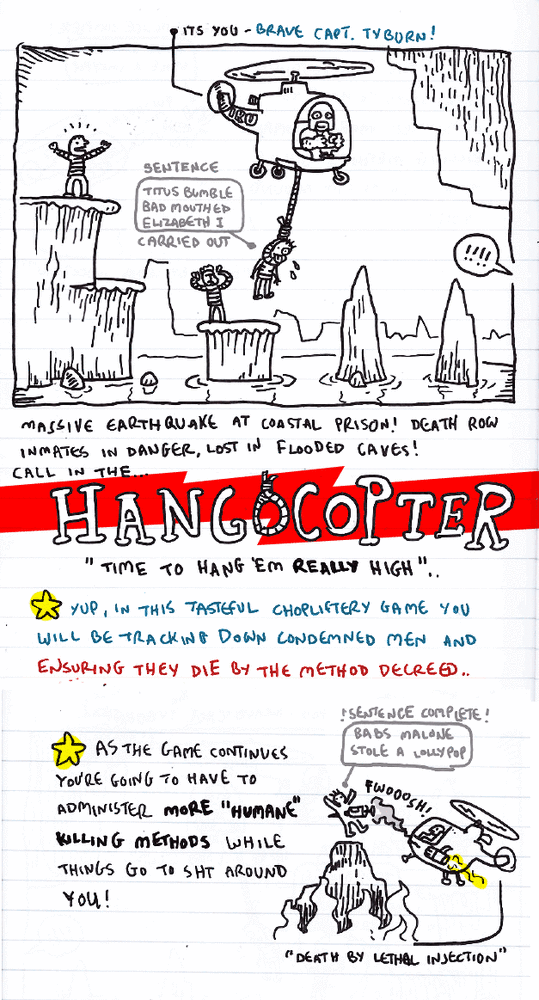 ITS YOU - BRAVE CAPT. TYBURN!
SENTENCE
TITUS BUMBLE
BAD MOUTHED
ELIZABETH I
CARRIED OUT
!!!!
MASSIVE EARTHQUAKE AT COASTAL PRISON! DEATH ROW
INMATES IN DANGER, LOST IN FLOODED CAVES!
CALL IN THE...
HANGOCOPTER
"TIME TO HANG 'EM REALLY HIGH"..
YUP, IN THIS TASTEFUL CHOPLIFTERY GAME YOU
WILL BE TRACKING DOWN CONDEMNED MEN AND
ENSURING THEY DIE BY THE METHOD DECREED..
!SENTENCE COMPLETE!
BABS MALONE
STOLE A LOLLYPOP
AS THE GAME CONTINUES
YOU'RE GOING TO HAVE TO
ADMINISTER MORE "HUMANE"
KILLING METHODS WHILE
THINGS GO TO SHT AROUND
YOU!
FWOOOSH!
"DEATH BY LETHAL INJECTION"